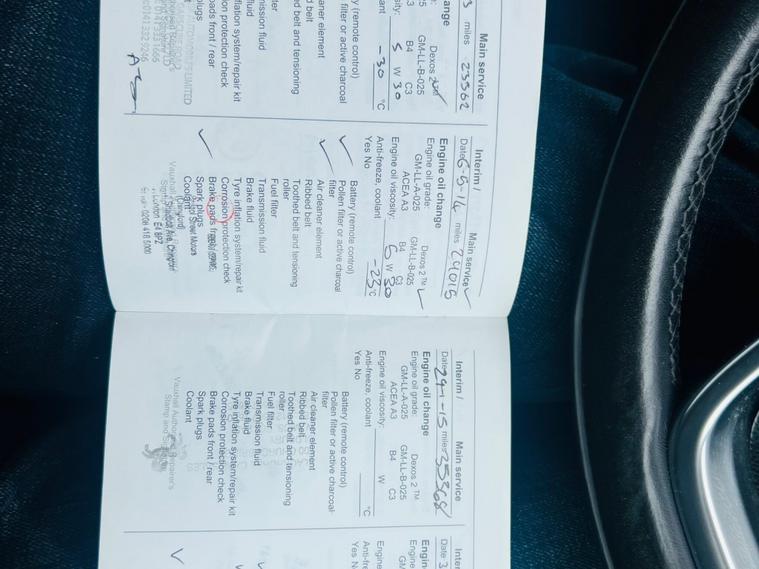 Main service
3 miles 23562
ange
Dexos 2
GM-LL-B-025
B4 C3
sity: 5 W 30
ant -30 °C
y (remote control)
filter or active charcoal
eaner element
d belt
d belt and tensioning
ter
mission fluid
fluid
flation system/repair kit
on protection check
pads front / rear
plugs
UNITED
Interim / Main service
Date 6-5-14 miles 29015
Engine oil change
Engine oil grade: Dexos 2™
GM-LL-A-025 GM-LL-B-025
ACEA A3 B4 C3
Engine oil viscosity: 5 W 30
Anti-freeze, coolant -23 °C
Yes No
Battery (remote control)
Pollen filter or active charcoal
filter
Air cleaner element
Ribbed belt
Toothed belt and tensioning
roller
Fuel filter
Transmission fluid
Brake fluid
Tyre inflation system/repair kit
Corrosion protection check
Brake pads front / rear
Spark plugs
Coolant
Vauxhall
London E4 8PZ
Interim / Main service
Date 29-1-15 miles 35368
Engine oil change
Engine oil grade: Dexos 2™
GM-LL-A-025 GM-LL-B-025
ACEA A3 B4 C3
Engine oil viscosity: W
Anti-freeze, coolant °C
Yes No
Battery (remote control)
Pollen filter or active charcoal
filter
Air cleaner element
Ribbed belt
Toothed belt and tensioning
roller
Fuel filter
Transmission fluid
Brake fluid
Tyre inflation system/repair kit
Corrosion protection check
Brake pads front / rear
Spark plugs
Coolant
Vauxhall Authorised Repairer's
Stamp and
Inter
Date 3
Engin
Engine
GM
Engine
Anti-fre
Yes N